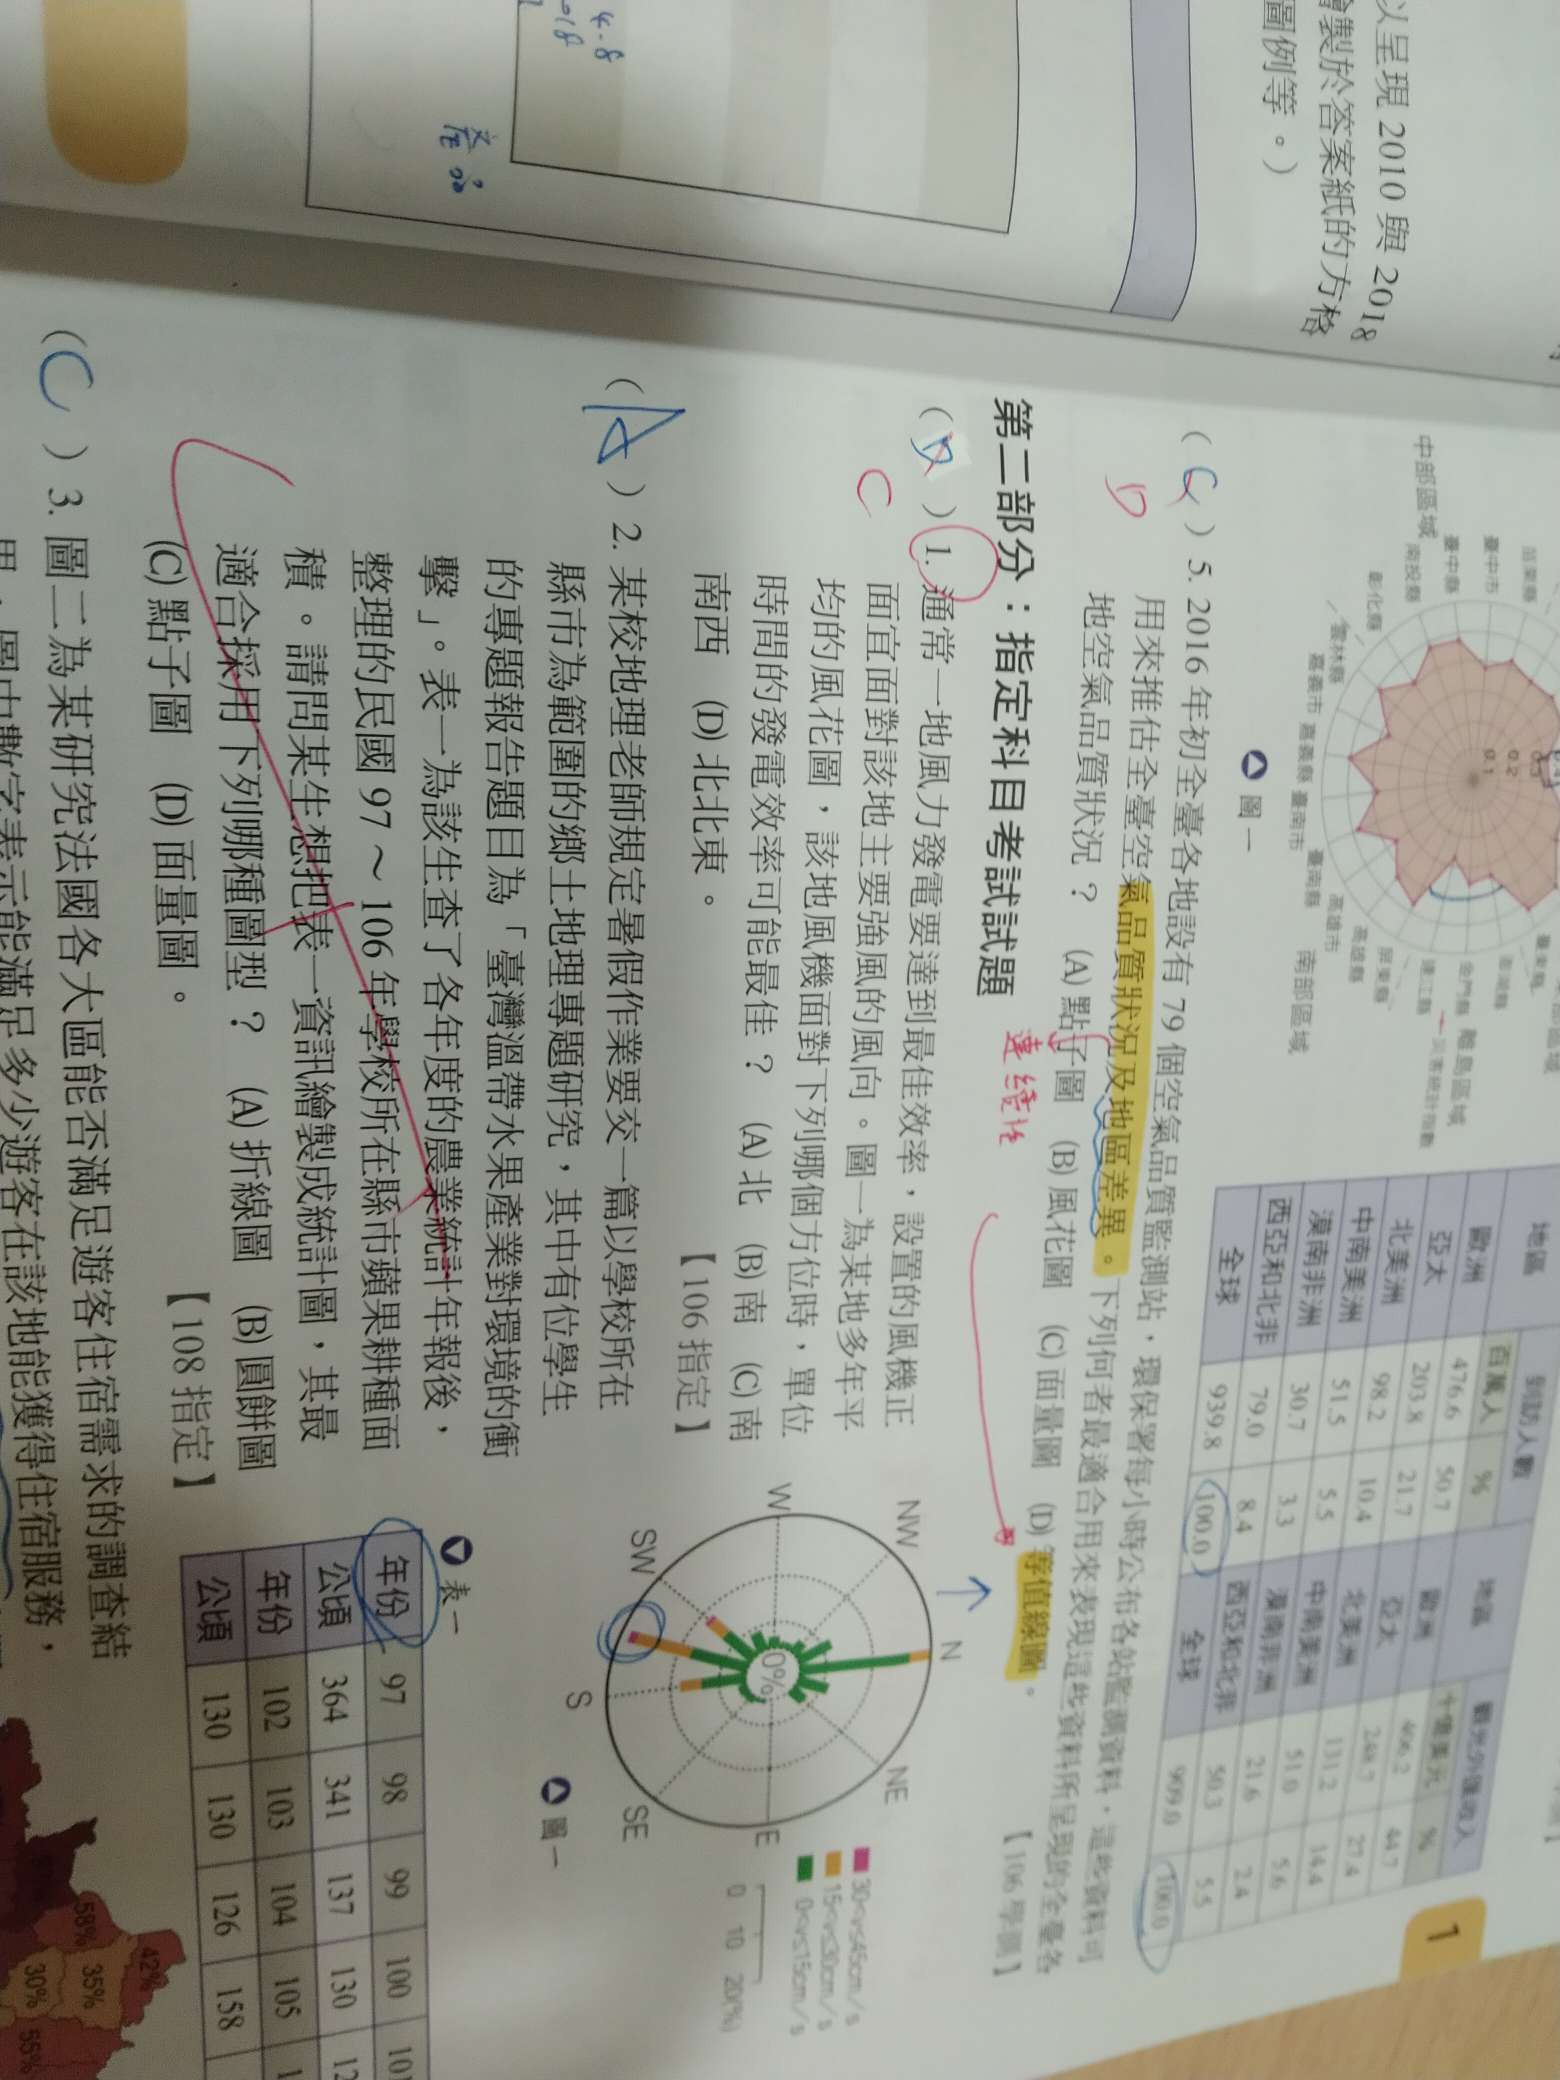 以呈現 2010 與 2018
繪製於答案紙的方格
圖例等。）
4.8
中部區域
臺中縣
臺中市
苗栗縣
南投縣
彰化縣
雲林縣
嘉義市
嘉義縣
臺南市
臺南縣
高雄市
高雄縣
屏東縣
南部區域
連江縣
金門縣
澎湖縣
離島區域
臺東縣
0.1
0.2
圖一
1
地區
到訪人數
百萬人 %
歐洲 476.6 50.7
亞太 203.8 21.7
北美洲 98.2 10.4
中南美洲 51.5 5.5
漠南非洲 30.7 3.3
西亞和北非 79.0 8.4
全球 939.8 100.0
地區
觀光外匯收入
十億美元 %
歐洲 406.2 44.7
亞太 248.7 27.4
北美洲 131.2 14.4
中南美洲 51.0 5.6
漠南非洲 21.6 2.4
西亞和北非 50.3 5.5
全球 909.0 100.0
（ C ）5. 2016 年初全臺各地設有 79 個空氣品質監測站，環保署每小時公布各站監測資料，這些資料可
D
用來推估全臺空氣品質狀況及地區差異。下列何者最適合用來表現這些資料所呈現的全臺各
地空氣品質狀況？ (A) 點子圖 (B) 風花圖 (C) 面量圖 (D) 等值線圖。 【106 學測】
連續性
第二部分：指定科目考試試題
（ D ）1. 通常一地風力發電要達到最佳效率，設置的風機正
C
面宜面對該地主要強風的風向。圖一為某地多年平
均的風花圖，該地風機面對下列哪個方位時，單位
時間的發電效率可能最佳？ (A) 北 (B) 南 (C) 南
南西 (D) 北北東。 【106 指定】
N
NE
E
SE
S
SW
W
NW
0%
30<v≤45cm/s
15<v≤30cm/s
0<v≤15cm/s
0 10 20(%)
圖一
（ A ）2. 某校地理老師規定暑假作業要交一篇以學校所在
縣市為範圍的鄉土地理專題研究，其中有位學生
的專題報告題目為「臺灣溫帶水果產業對環境的衝
擊」。表一為該生查了各年度的農業統計年報後，
整理的民國 97～106 年學校所在縣市蘋果耕種面
積。請問某生想把表一資訊繪製成統計圖，其最
適合採用下列哪種圖型？ (A) 折線圖 (B) 圓餅圖
(C) 點子圖 (D) 面量圖。 【108 指定】
表一
年份 97 98 99 100 101
公頃 364 341 137 130 12
年份 102 103 104 105 1
公頃 130 130 126 158
（ C ）3. 圖二為某研究法國各大區能否滿足遊客住宿需求的調查結
果，圖中數字表示能滿足多少遊客在該地能獲得住宿服務，
58%
42%
35%
30%
55%